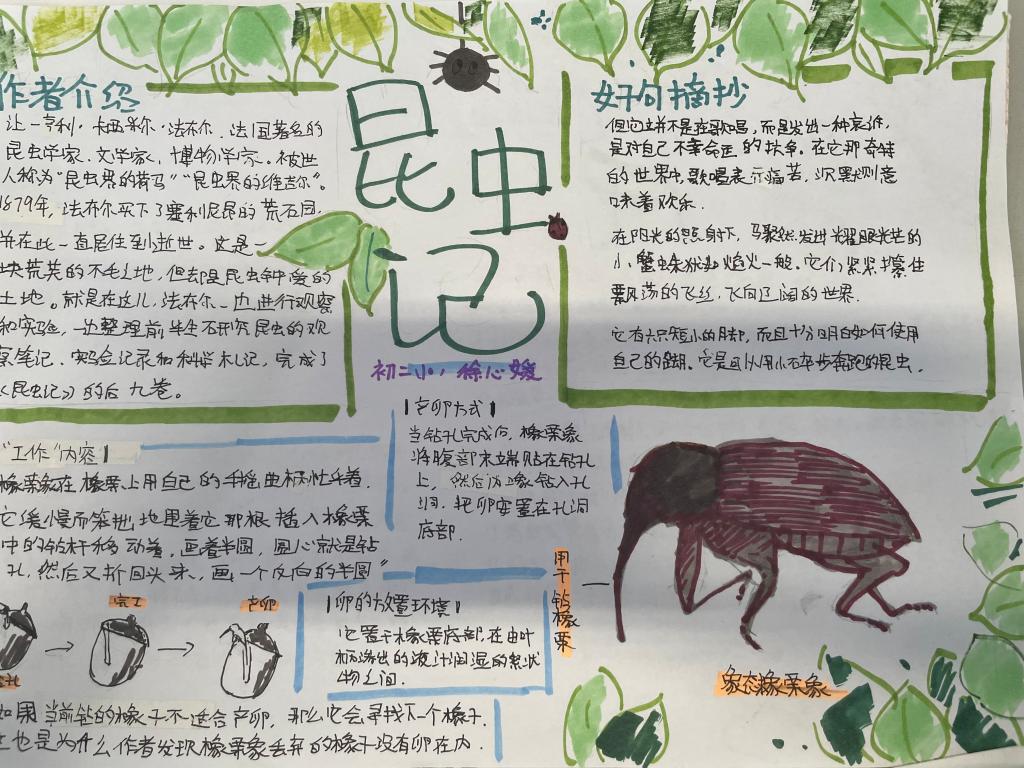 作者介绍
让－亨利·卡西米尔·法布尔，法国著名的
昆虫学家、文学家、博物学家。被世
人称为"昆虫界的荷马""昆虫界的维吉尔"。
1879年，法布尔买下了塞利尼昂的荒石园，
并在此一直居住至到逝世。这是一
块荒芜的不毛土地，但却是昆虫钟爱的
土地。就是在这儿，法布尔一边进行观察
和实验，一边整理前半生研究昆虫的观
察笔记、实验记录和科学札记，完成了
《昆虫记》的后九卷。
昆虫记
初二小1 徐心媛
好句摘抄
但它并不是在歌唱，而是发出一种哀诉，
是对自己不幸命运的抗争。在它那奇特
的世界中，歌唱表示痛苦，沉默则意
味着欢乐。
在阳光的照射下，
小蟹蛛犹如焰火一般。它们紧紧攥住
飘荡的飞丝，飞向了阔的世界。
它有六只短小的脚，而且十分明白如何使用
自己的腿。它是可以用小碎步奔跑的昆虫。
"工作"内容
橡栗象在橡栗上用自己的
它缓慢而笨拙地围着它那根插入橡栗
中的钻杆移动着，画着半圆，圆心就是钻
孔，然后又折回头来，画一个反向的半圆"
完工
产卵
如果当前钻的橡子不适合产卵，那么它会寻找下一个橡子。
这也是为什么作者发现橡栗象丢弃的橡子没有卵在内。
产卵方式
当钻孔完成后，橡栗象
将腹部末端贴在钻孔
上，然后
洞，把卵安置在孔洞
底部。
卵的放置环境
它置于橡栗底部，在由叶
柄渗出的液汁润湿的絮状
物之间。
用于钻橡栗
象态橡栗象